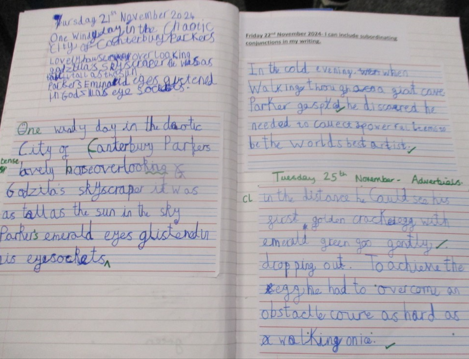 Thursday 21st November 2024
One windy day in the Chaotic
City of Canterbury Parkers
Lovely house overlooking
skyscraper it was as
tall as the sun
Parkers emerald eyes glistend
in his eye sockets.
One windy day in the chaotic
City of Canterbury Parkers
tense
lovely house overlooking
Godzilla's skyscraper it was
as tall as the sun in the sky
Parker's emerald eyes glistend in
is eyesockets
Friday 22nd November 2024: I can include subordinating
conjunctions in my writing.
In the cold evening when
walking cave
Parker he discovered he
needed
be the worlds best artist
Tuesday 25th November - Adverbials.
CL
in the distance he could see his
giant golden cracked egg with
green goo gently
dropping out. To achieve the
egg he had to overcome an
obstacle coure as hard as
walking on ice.